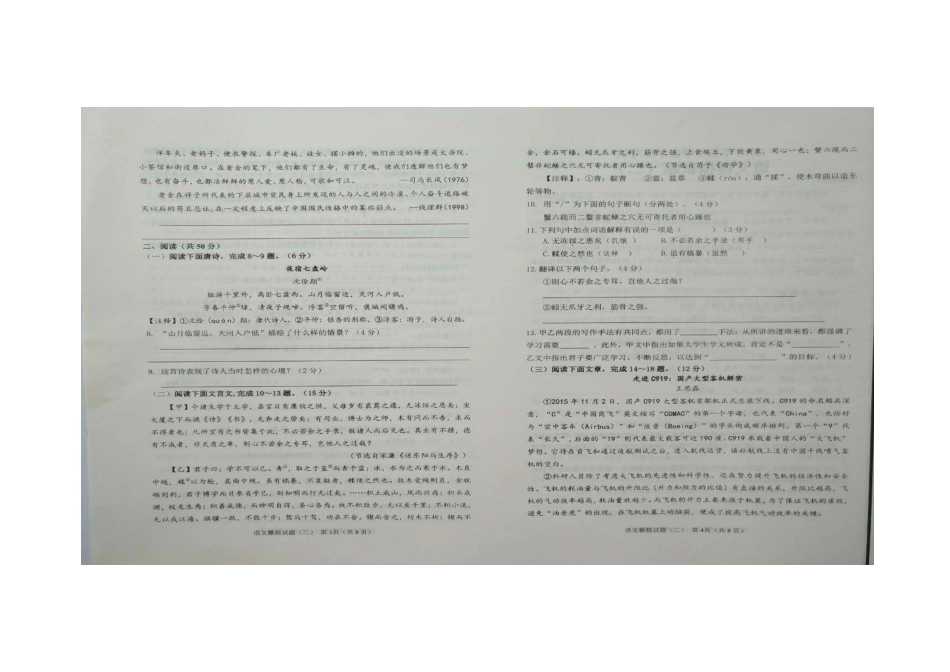 洋车夫、老妈子、便衣警探、车厂老板、妓女、摆小摊的,他们出没的场景是大杂院、
小茶馆和街边巷口,在老舍的笔下,他们都有了生命,有了灵魂,使我们透解他们也有梦
想,也有奋斗,也都活鲜鲜的惹人爱、惹人愁,可歌和可泣。 —司马长风(1976)
老舍在祥子所代表的下层城市贫民身上所发现的人与人之间的冷漠、个人奋斗道路破
灭以后的苟且忍让,在一定程度上反映了中国国民性格中的某些弱点。 —钱理群(1998)
二、阅读(共50分)
(一)阅读下面唐诗,完成8~9题。(6分)
夜宿七盘岭
沈佺期①
独游千里外,高卧七盘西。山月临窗近,天河入户低。
芳春平仲②绿,清夜子规啼。浮客③空留听,褒城闻曙鸡。
【注释】①沈佺(quán)期:唐代诗人。②平仲:银杏的别称。③浮客:游子,诗人自指。
8. “山月临窗近,天河入户低”描绘了什么样的情景?(4分)
9. 这首诗表现了诗人当时怎样的心境?(2分)
(二)阅读下面文言文,完成10~13题。(15分)
【甲】今诸生学于太学,县官日有廪稍之供,父母岁有裘葛之遗,无冻馁之患矣;坐
大厦之下而诵《诗》《书》,无奔走之劳矣;有司业、博士为之师,未有问而不告,求而
不得者也;凡所宜有之书皆集于此,不必若余之手录,假诸人而后见也。其业有不精,德
有不成者,非天质之卑,则心不若余之专耳,岂他人之过哉?
(节选自宋濂《送东阳马生序》)
【乙】君子曰:学不可以已。青①,取之于蓝②而青于蓝;冰,水为之而寒于水。木直
中绳,輮③以为轮,其曲中规,虽有槁暴,不复挺者,輮使之然也。故木受绳则直,金就
砺则利,君子博学而日参省乎己,则知明而行无过矣。……积土成山,风雨兴焉;积水成
渊,蛟龙生焉;积善成德,而神明自得,圣心备焉。故不积跬步,无以至千里;不积小流,
无以成江海。骐骥一跃,不能十步;驽马十驾,功在不舍。锲而舍之,朽木不折;锲而不
语文模拟试题(二) 第3页(共8页)
舍,金石可镂。蚓无爪牙之利,筋骨之强,上食埃土,下饮黄泉,用心一也;蟹六跪而二
螯非蛇鳝之穴无可寄托者用心躁也。(节选自荀子《劝学》)
【注释】:①青:靛青 ②蓝:蓝草 ③輮(róu),通“揉”,使木弯曲以造车
轮等物。
10. 用“/”为下面的句子断句(分两处)。(4分)
蟹六跪而二螯非蛇鳝之穴无可寄托者用心躁也
11. 下列句中加点词语解释有误的一项是( )(3分)
A.无冻馁之患矣(饥饿 ) B.不必若余之手录(用手 )
C.輮使之然也(这样 ) D.虽有槁暴(虽然 )
12.翻译以下两个句子。(4分)
①则心不若余之专耳,岂他人之过哉?
②蚓无爪牙之利,筋骨之强。
13. 甲乙两段的写作手法有共同点,都用了 手法;从所讲的道理来看,都强调了
学习需要 。此外,甲文中指出如果太学生学无所成,肯定不是“ ”,
乙文中指出君子要广泛学习,不断反思,以达到“ ”的目标。(4分)
(三)阅读下面文章,完成14~18题。(12分)
走进C919:国产大型客机解密
王思磊
①2015年11月2日,国产C919大型客机首架机正式总装下线。C919的命名颇具深
意,“C”是“中国商飞”英文缩写“COMAC”的第一个字母,也代表“China”,也恰好
与“空中客车(Airbus)”和“波音(Boeing)”的字头构成顺序排列。第一个“9”代
表“长久”,后面的“19”则代表最大载客可达190座。C919承载着中国人的“大飞机”
梦想。它将在首飞和通过适航测试之后,进入航线运营,填补航线上没有中国干线喷气客
机的空白。
②科研人员除了考虑大飞机的先进性和科学性,还在努力提升飞机的经济性和安全
性。飞机的耗油量与飞机的升阻比(升力和阻力的比值)有直接的关系,升阻比越高,飞
机的气动效率越高,耗油量就越少。而飞机的升力主要来源于机翼,为了保证飞机的座级,
避免“油老虎”的出现,在飞机机翼上动脑筋,便成了提高飞机气动效率的关键。
语文模拟试题(二) 第4页(共8页)